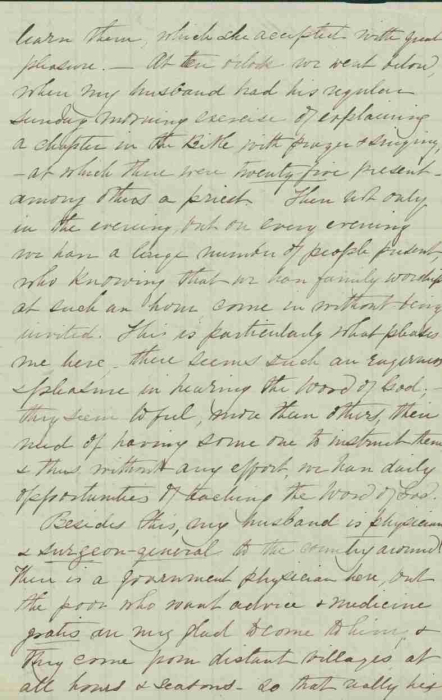 learn them, which she accepted with great
pleasure. — At ten oclock we went below,
when my husband had his regular
Sunday morning exercise of explaining
a chapter in the Bible, with prayer & singing,
— at which there were twenty five present —
among others a priest. Then not only
in the evening, but on every evening
we have a large number of people present
who knowing that we have family worship
at such an hour come in without being
invited. This is particularly what pleases
me here — there seems such an eagerness
& pleasure in hearing the Word of God;
they seem to feel, more than others, their
need of having some one to instruct them
& thus, without any effort we have daily
opportunities of teaching the Word of God.
Besides this, my husband is physician
& surgeon-general to the country around.
There is a government physician here, but
the poor who want advice & medicine
gratis are very glad to come to him, &
they come from distant villages, at
all hours & seasons — so that really his